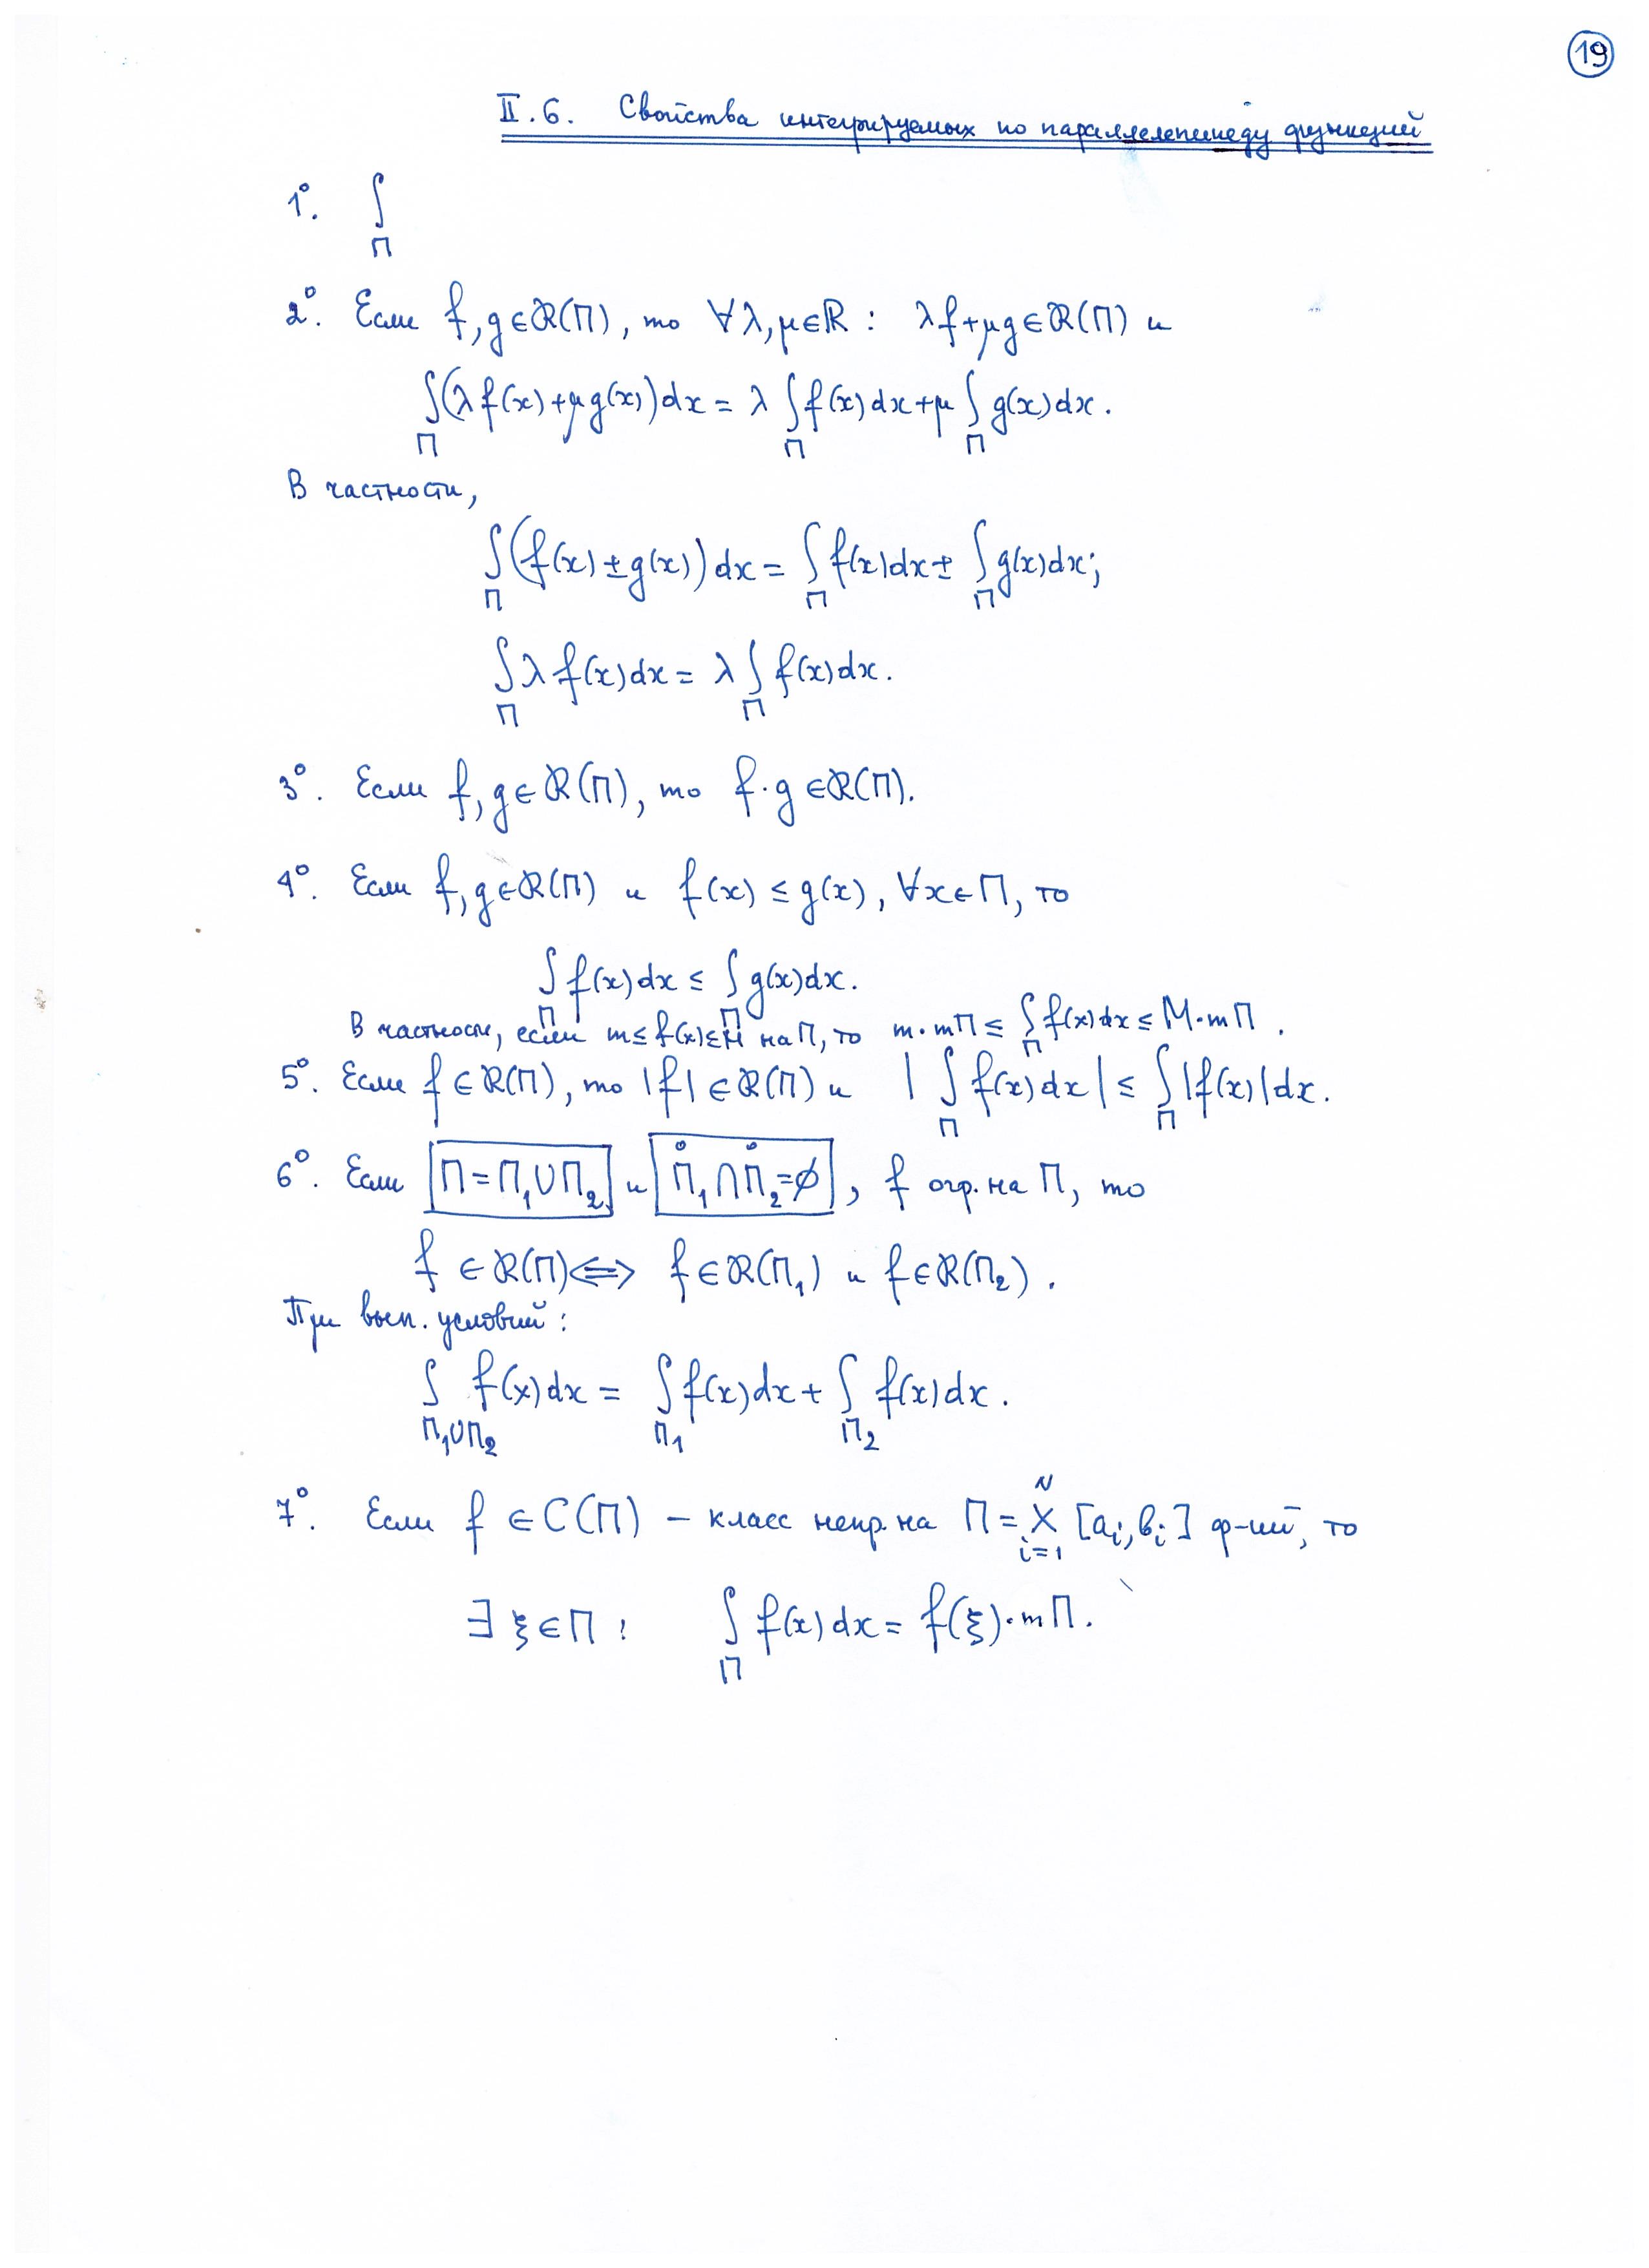 19
II.6. Свойства интегрируемых по параллелепипеду функций
1°. ∫_П
2°. Если f, g ∈ ℛ(П), то ∀ λ, μ ∈ ℝ : λf + μg ∈ ℛ(П) и
∫_П (λ f(x) + μ g(x)) dx = λ ∫_П f(x) dx + μ ∫_П g(x) dx.
В частности,
∫_П (f(x) ± g(x)) dx = ∫_П f(x) dx ± ∫_П g(x) dx;
∫_П λ f(x) dx = λ ∫_П f(x) dx.
3°. Если f, g ∈ ℛ(П), то f · g ∈ ℛ(П).
4°. Если f, g ∈ ℛ(П) и f(x) ≤ g(x), ∀x ∈ П, то
∫_П f(x) dx ≤ ∫_П g(x) dx.
В частности, если m ≤ f(x) ≤ M на П, то m · mП ≤ ∫_П f(x) dx ≤ M · mП.
5°. Если f ∈ ℛ(П), то |f| ∈ ℛ(П) и | ∫_П f(x) dx | ≤ ∫_П |f(x)| dx.
6°. Если П = П₁ ∪ П₂ и П̊₁ ∩ П̊₂ = ∅, f огр. на П, то
f ∈ ℛ(П) ⟺ f ∈ ℛ(П₁) и f ∈ ℛ(П₂).
При вып. условий:
∫_{П₁∪П₂} f(x) dx = ∫_{П₁} f(x) dx + ∫_{П₂} f(x) dx.
7°. Если f ∈ C(П) – класс непр. на П = X_{i=1}^{N} [aᵢ, bᵢ] ф-ций, то
∃ ξ ∈ П : ∫_П f(x) dx = f(ξ) · mП.